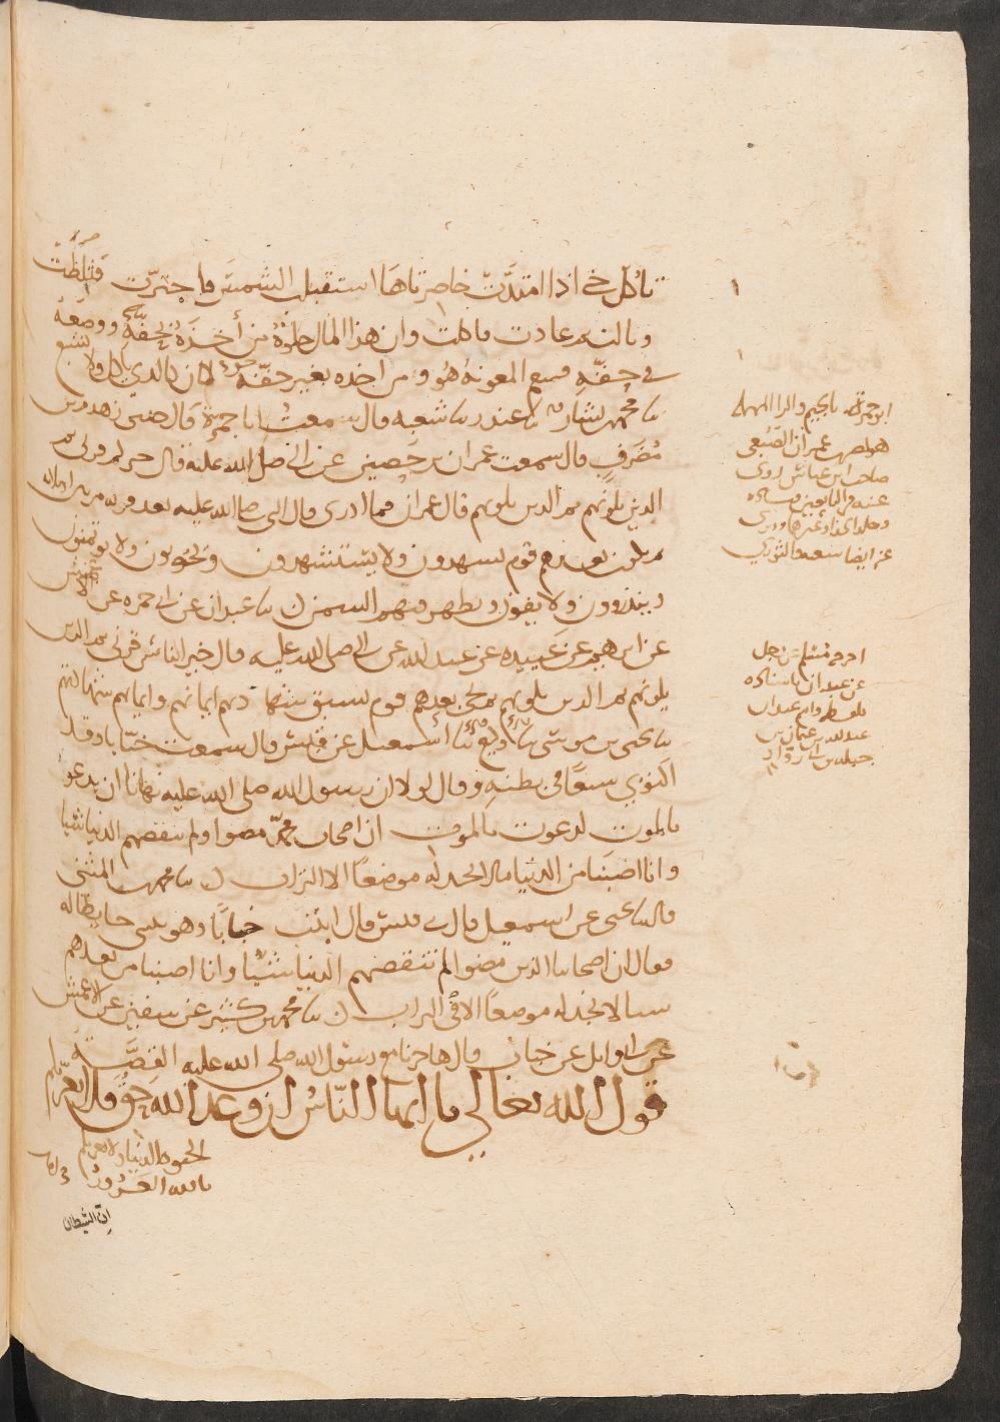 تأكل حتى اذا امتدَّتْ خاصرتاهَا استقبلت الشمسَ فاجترّت فثلطَت
وبالت ثم عادت فاكلت وان هذا المال حلوةٌ من أخذهُ بحقّه ووضعهُ
في حقّهِ فنعم المعونة هُو ومن اخذه بغير حقّه كان كالذي ياكل ولا يشبع
سا محمد بن بشار سا غندر سا شعبه قال سمعت ابا جمرة قال حدثنى زهدم بن
مُضَرِّبٍ قال سمعت عمران بن حصين عن النبي صلى الله عليه قال خيركم قرني ثم
الذين يلونهم ثم الذين يلونهم قال عمران فما ادرى قال النبي صلى الله عليه بعد قوله مرتين او ثلاثا
ثم يكون بعدهم قوم يشهدون ولا يستشهدون ويخونون ولا يؤتمنون
وينذرون ولا يفون ويظهر فيهم السمن ن سا عبدان عن ابي حمزه عن الاعمش
عن ابرهيم عن عَبيده عن عبد الله عن النبي صلى الله عليه قال خير الناس قرني ثم الذين
يلونهم ثم الذين يلونهم ثم يجي بعدهم قوم تسبق شهادتهم ايمانهم وايمانهم شهادتهم
سا يحيى بن موسى سا وكيع سا اسمعيل عن قيس قال سمعت خبّابا وقد
اكتوي سبعًا في بطنهِ وقال لولا ان رسول الله صلى الله عليه نهانا ان ندعو
بالموت لدعوت بالموت ان اصحاب محمّد مضوا ولم تنقصهم الدنيا شيا
وانا اصبنَا من الدنيا ما لا نجد له موضعًا الا التراب ن سا محمد بن المثنى
قال سا يحيى عن اسمعيل قال سا قيس قال اتيت خبابًا وهو يبني حايطًا له
فقال ان اصحابنا الذين مضوا لم تنقصهم الدنيا شيئا وانا اصبنا من بعدهم
شيا لا نجد له موضعًا الا في التراب ن سا محمد بن كثير عن سفين عن الاعمش
عن ابي وايل عن خباب قال هاجرنا مع رسول الله صلى الله عليه القصَّة
قول الله تعالى يا ايها الناسُ ان وعد الله حق فلا تغرّنكم
الحيوة الدنيا ولا يغرنكم
بالله الغَرُورُ
إنّ الشيطان
ابو جمرة بالجيم والراء
هو نصر بن عمران الضُّبَعي
صاحب ابن عباس روى
عنه
عن ايضا
اخرجه مسلم عن رجل
عن عبدان باسناده
عبد الله بن عثمان بن
جبله بن ابي روّاد